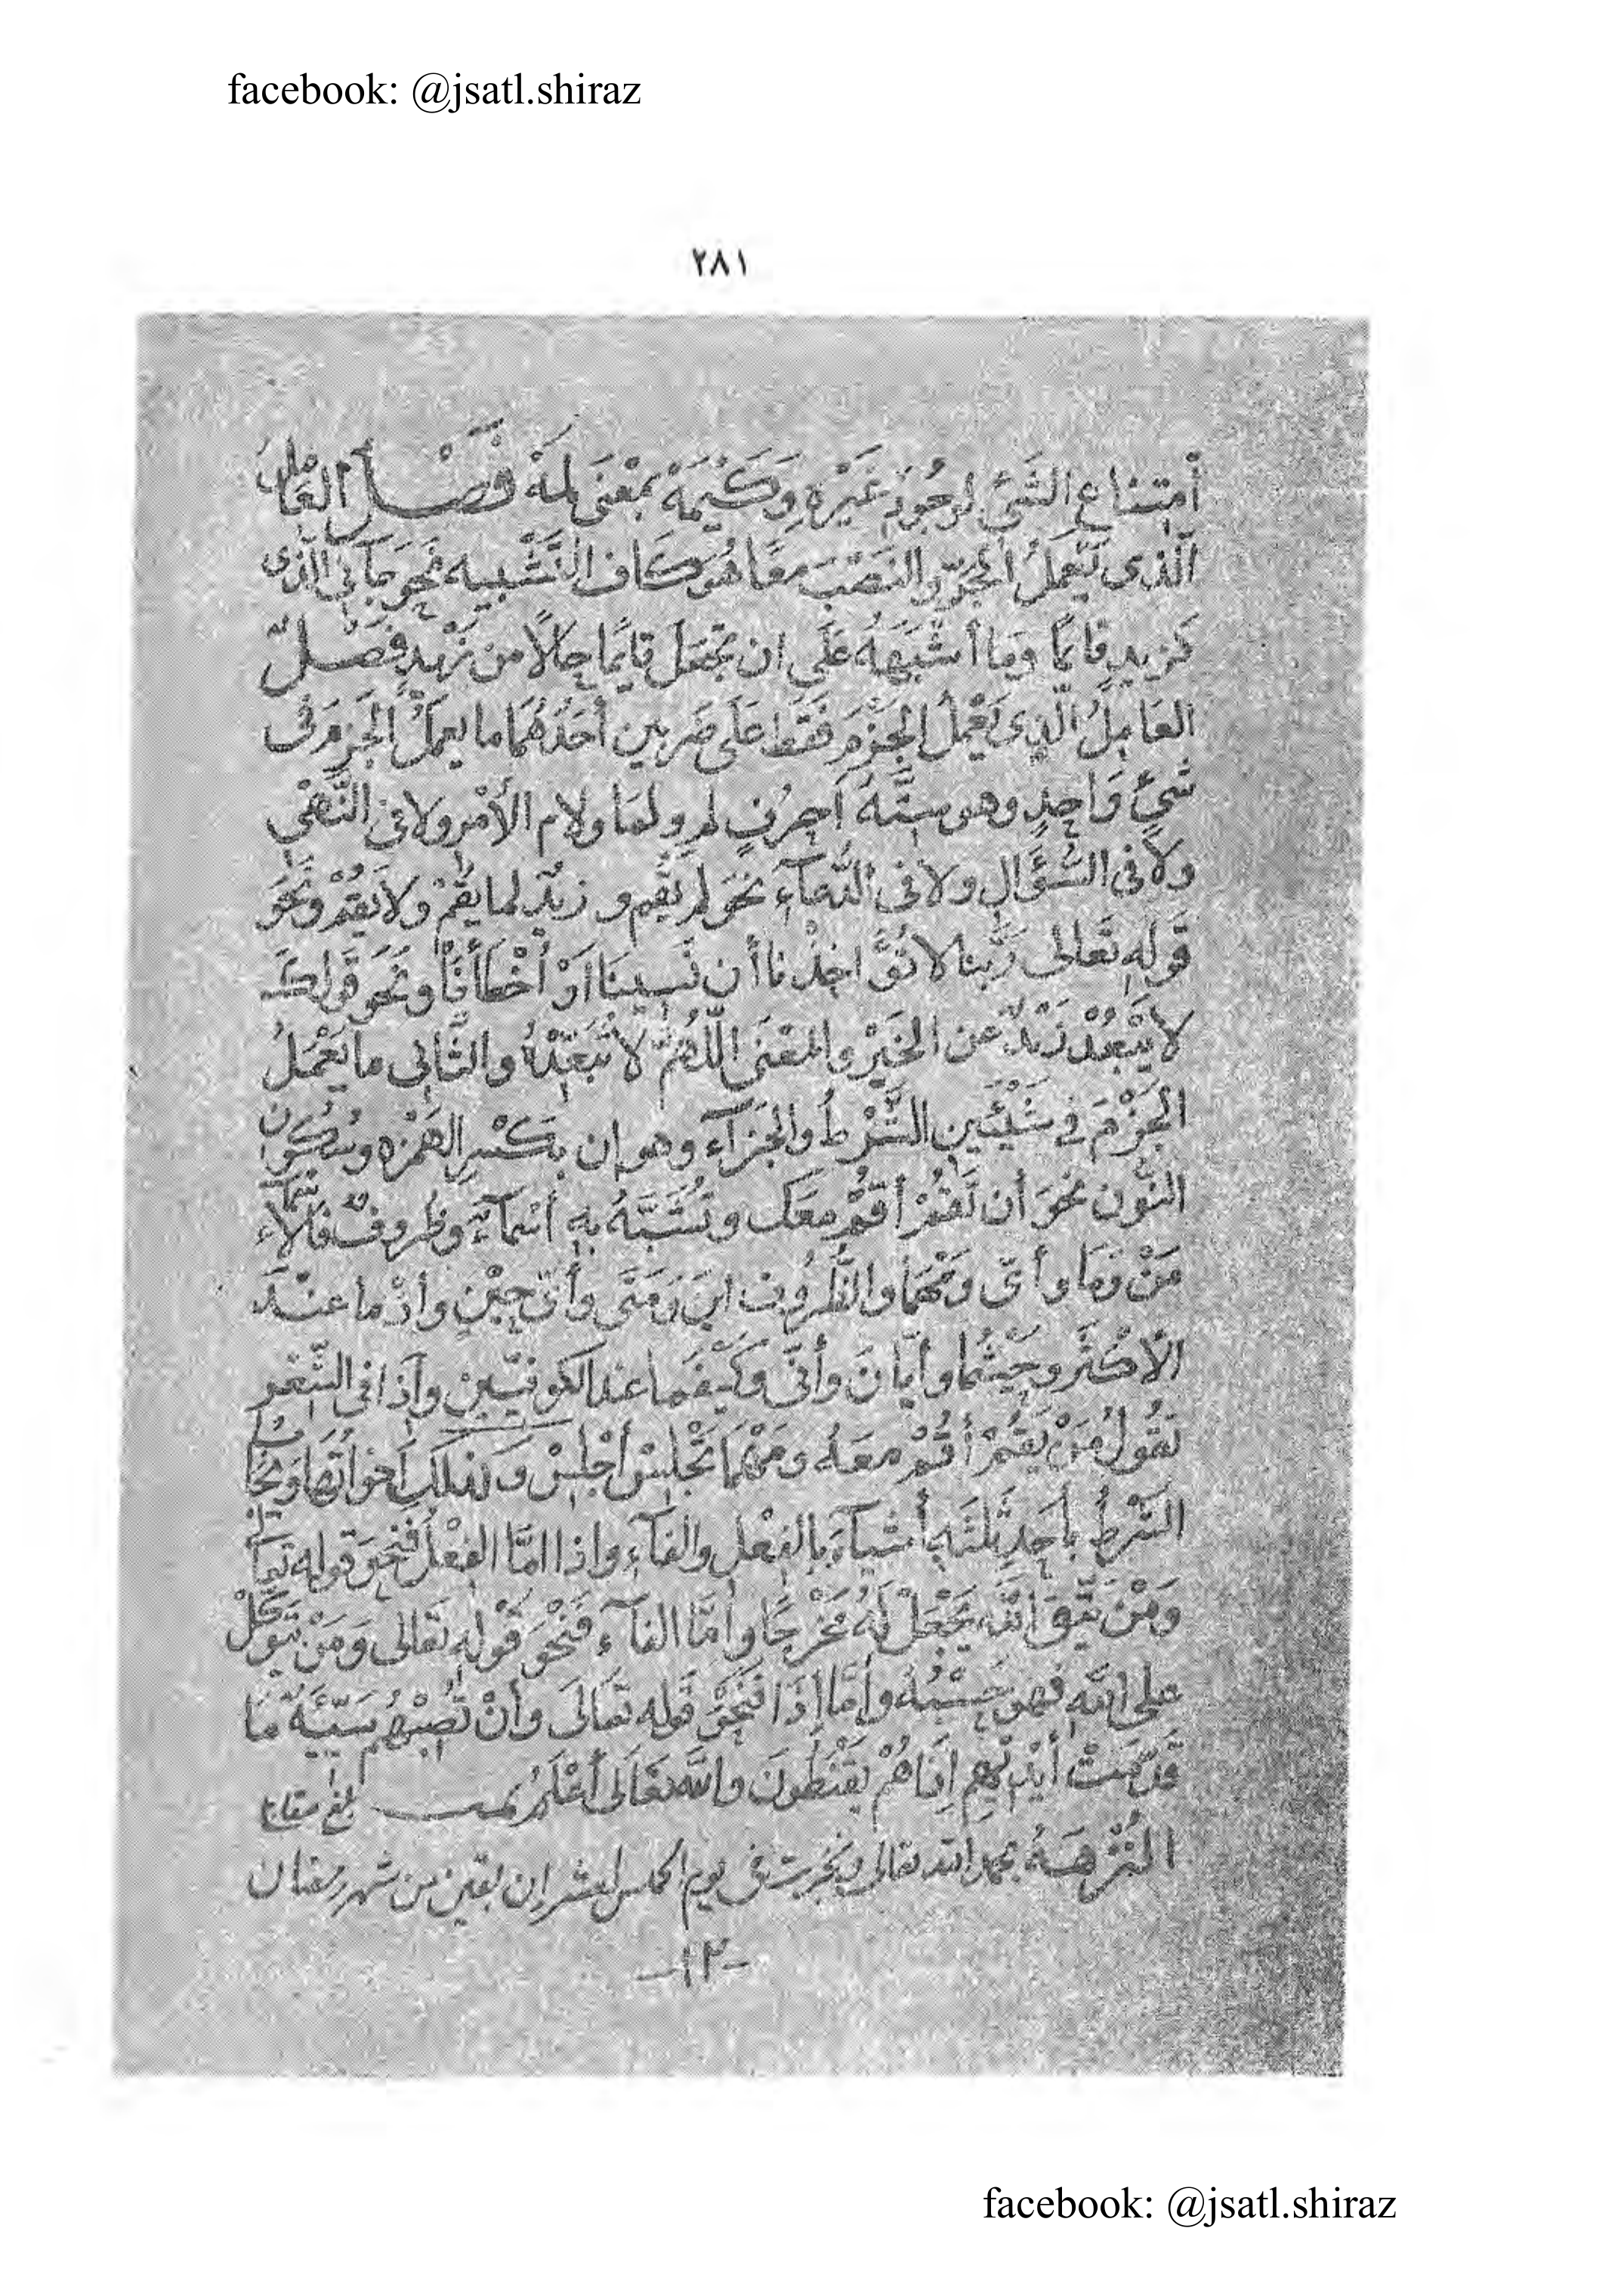 facebook: @jsatl.shiraz
٢٨١
أمتناع الشئ لوجُودِ غَيْرِهِ وَكَيْمَهْ بمعْنى لِمَهْ فَصْل العَامِل
الّذى يَعْمَلُ الجرّ والنصْبَ معًا هُوَ كاف التَّشْبيه نحوَ جآنى الذى
كزيدٍ قائمًا وَمَا أشْبَهَهُ عَلَى ان تجْعَل قايمًا حالاً من زيْدٍ فصْلٌ
العَامِلُ الّذِى يَعْمَلُ الجَزْمَ فَقَط عَلَى ضَربين أحَدُهُمَا ما يعملُ الجزمَ فى
شئٍ وَاحِدٍ وهو ستَّةُ أحرُفٍ لم ولمَا ولام الأمْرِ ولا فى النَّهْى
ولاَ فى السُّؤَالِ ولا فى الدُّعآءِ نَحْوَ لم يقُم و زيْد لما يقُمْ ولاَ يَقُمْ ونَحْوَ
قَولِهِ تَعَالى رَبَّنا لا تُؤَاخِذْنا أن نَسِينَا أوْ أخْطَأنَا ونَحْوَ قَولكَ
لا يَبْعُدْ زَيْدٌ عن الخَيْرِ والمعْنَى اللَّهُمَّ لا تُبَعِّدْهُ والثَّانِى ما يَعْمَلُ
الجَزْمَ فى شَيْئَينِ الشَّرْطُ والجَزَآءَ وهو ان بكَسْرِ الهَمْزه وسُكُون
النُّون نحوَ أن تَقُمْ أقُمْ معَك وتُشَبَّهُ به أسْمآءٌ وظُروفٌ فالأسْمآء
مَنْ وَمَا وأىّ ومَهْمَا والظُّرُوف اينَ وَمَتَى وأىّ حِيْنٍ وأذْ ما عنْدَ
الأكْثَرِ وحَيْثُما وأيّانَ وأنّى وكَيْفَما عند الكوفيّين وأذَا فى الشّعْر
تقُولُ مَنْ يَقُمْ أقُمْ معَهُ ومَهْمَا تَجْلِسْ أجْلِسْ وَكذلك أخواتُها ويُجَابُ
الشّرْطُ بأحَدِ ثلثَةِ أشيآءَ بالفِعْل والفآءِ واذا امّا الفِعْل فنحوَ قوله تعالى
ومَنْ يتّقِ اللهَ يَجْعَلْ لَهُ مَخْرجًا وأمَّا الفآء فَنَحْوَ قَوْلِهِ تعَالى وَمَنْ يتوكّلْ
على اللهِ فهوَ حَسْبُهُ وأمَّا إذَا فنحوَ قَوله تعَالَى وأنْ تُصِبْهُم سَيّئَةٌ بمَا
قدّمَتْ أيْديْهِم إذَا هُمْ يقْنَطُونَ والله تعَالَى أعْلَمُ تمت
النُّزْهَةُ بحمد الله تعالى فى يوم لعشر ان بقين من شهر رمضان
-١٢-
facebook: @jsatl.shiraz